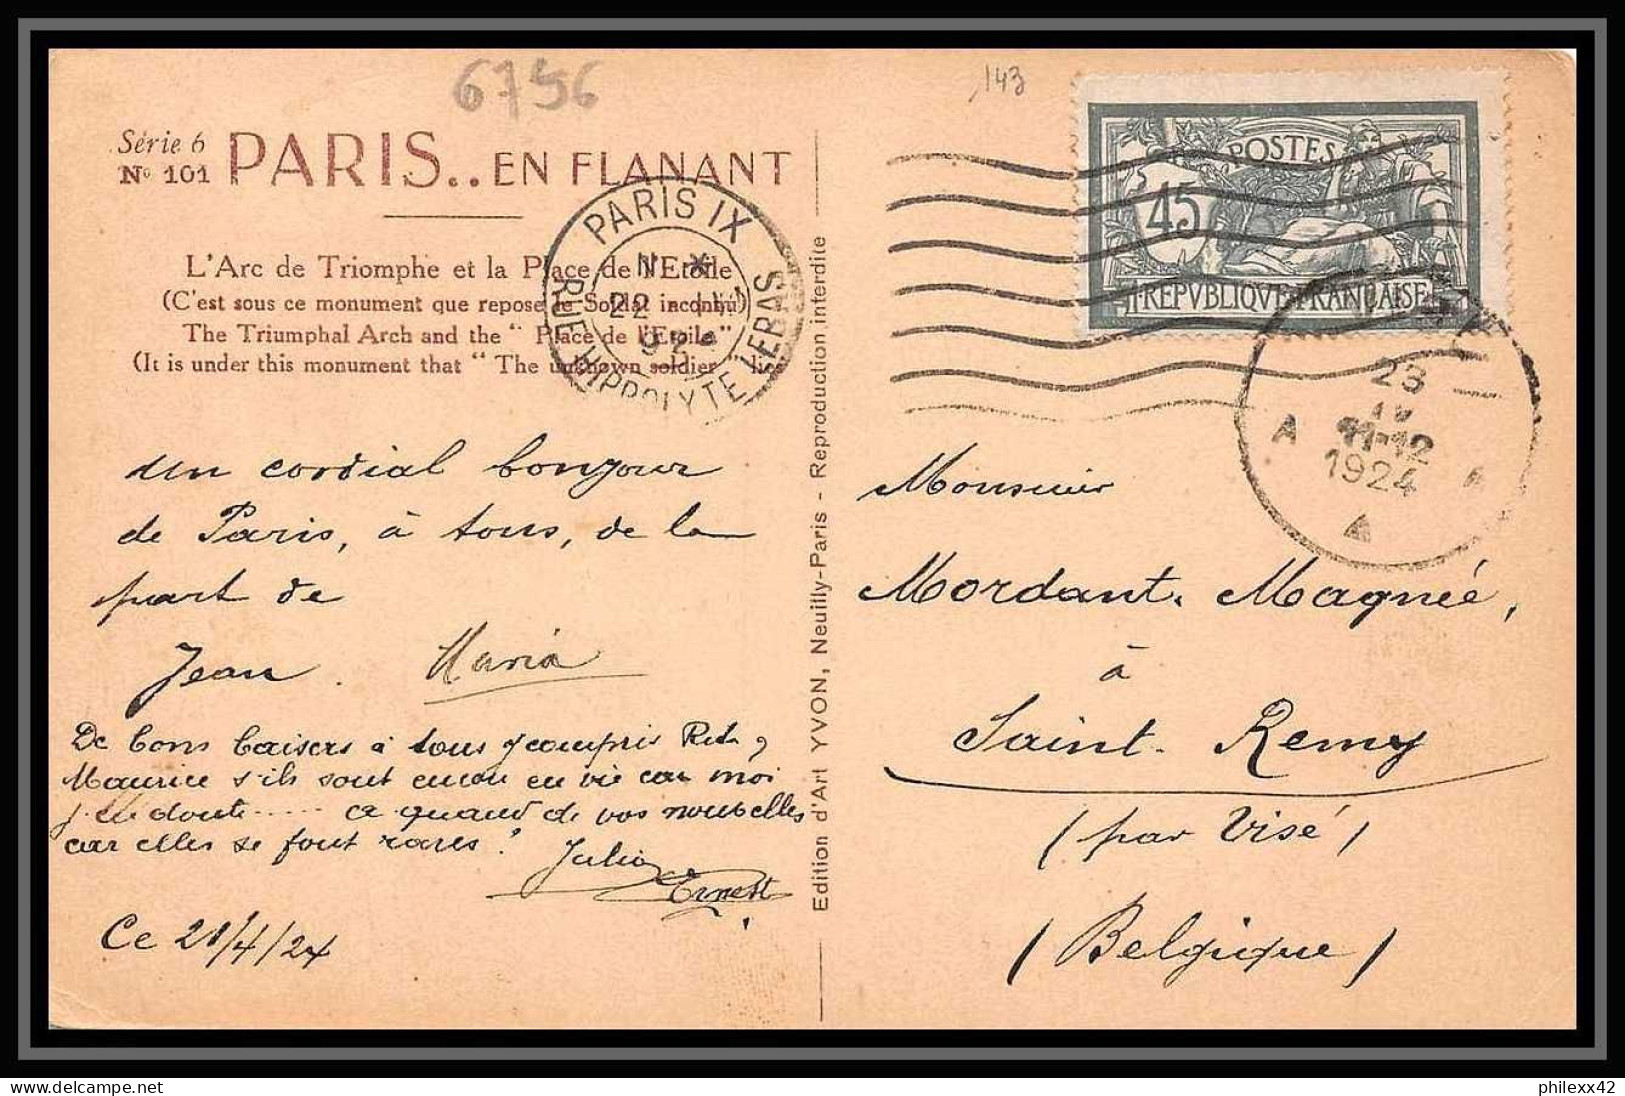 6756
143
Série 6
N° 101
PARIS.. EN FLANANT
L'Arc de Triomphe et la Place de l'Etoile
(C'est sous ce monument que repose le Soldat inconnu)
The Triumphal Arch and the " Place de l'Etoile"
(It is under this monument that " The unknown soldier " lies
PARIS IX
22
RUE HIPPOLYTE LEBAS
POSTES
45
REPVBLIQVE FRANÇAISE
23
IV
11-12
1924
A
Un cordial bonjour
de Paris, à tous, de la
part de
Jean. Maria
De bons baisers à tous y compris
Maurice s'ils sont encore en vie car moi
j'en doute ..... quand de vos nouvelles
car elles se font rares?
Julia
Ernest
Ce 21/4/24
Edition d'Art YVON, Neuilly-Paris - Reproduction interdite
Monsieur
Mordant-Magnée,
à
Saint-Remy
(par Visé)
(Belgique)
delcampe.net
philexx42